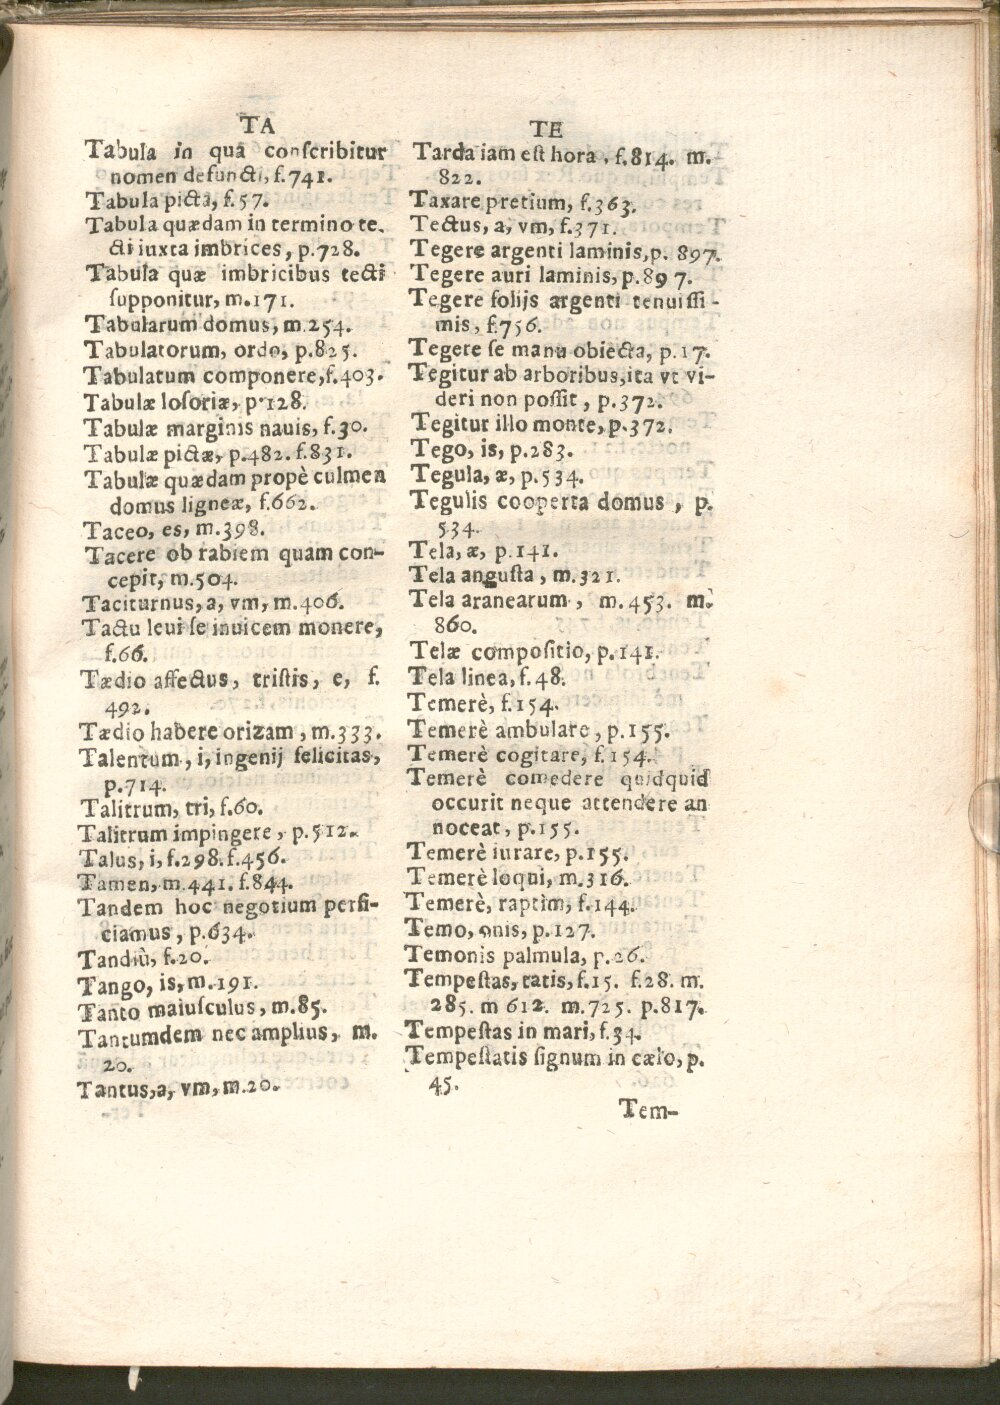 TA
Tabula in quâ conſcribitur
nomen defuncti, f.741.
Tabula picta, f.57.
Tabula quædam in termino te.
cti iuxta imbrices, p.728.
Tabula quæ imbricibus tecti
ſupponitur, m.171.
Tabularum domus, m.254.
Tabulatorum, ordo, p.825.
Tabulatum componere, f.403.
Tabulæ loſoriæ, p.128.
Tabulæ marginis nauis, f.30.
Tabulæ pictæ, p.482. f.831.
Tabulæ quædam propè culmen
domus ligneæ, f.662.
Taceo, es, m.398.
Tacere ob rabiem quam con-
cepit, m.504.
Taciturnus, a, vm, m.406.
Tactu leui ſe inuicem monere,
f.66.
Tædio affectus, triſtis, e, f.
492.
Tædio habere orizam, m.333.
Talentum, i, ingenij felicitas,
p.714.
Talitrum, tri, f.60.
Talitrum impingere, p.512.
Talus, i, f.298. f.456.
Tamen, m.441. f.844.
Tandem hoc negotium perfi-
ciamus, p.634.
Tandiù, f.20.
Tango, is, m.191.
Tanto maiuſculus, m.85.
Tantumdem nec amplius, m.
20.
Tantus, a, vm, m.20.
TE
Tarda iam eſt hora, f.814. m.
822.
Taxare pretium, f.363.
Tectus, a, vm, f.371.
Tegere argenti laminis, p. 897.
Tegere auri laminis, p.897.
Tegere folijs argenti tenuiſſi-
mis, f.756.
Tegere ſe manu obiecta, p.17.
Tegitur ab arboribus, ita vt vi-
deri non poſſit, p.372.
Tegitur illo monte, p.372.
Tego, is, p.283.
Tegula, æ, p.534.
Tegulis cooperta domus, p.
534.
Tela, æ, p.141.
Tela anguſta, m.321.
Tela aranearum, m.453. m.
860.
Telæ compoſitio, p.141.
Tela linea, f.48.
Temerè, f.154.
Temerè ambulare, p.155.
Temerè cogitare, f.154.
Temerè comedere quidquid
occurit neque attendere an
noceat, p.155.
Temerè iurare, p.155.
Temerè loqui, m.316.
Temerè, raptìm, f.144.
Temo, onis, p.127.
Temonis palmula, p.26.
Tempeſtas, tatis, f.15. f.28. m.
285. m 612. m.725. p.817.
Tempeſtas in mari, f.34.
Tempeſtatis ſignum in cælo, p.
45.
Tem-